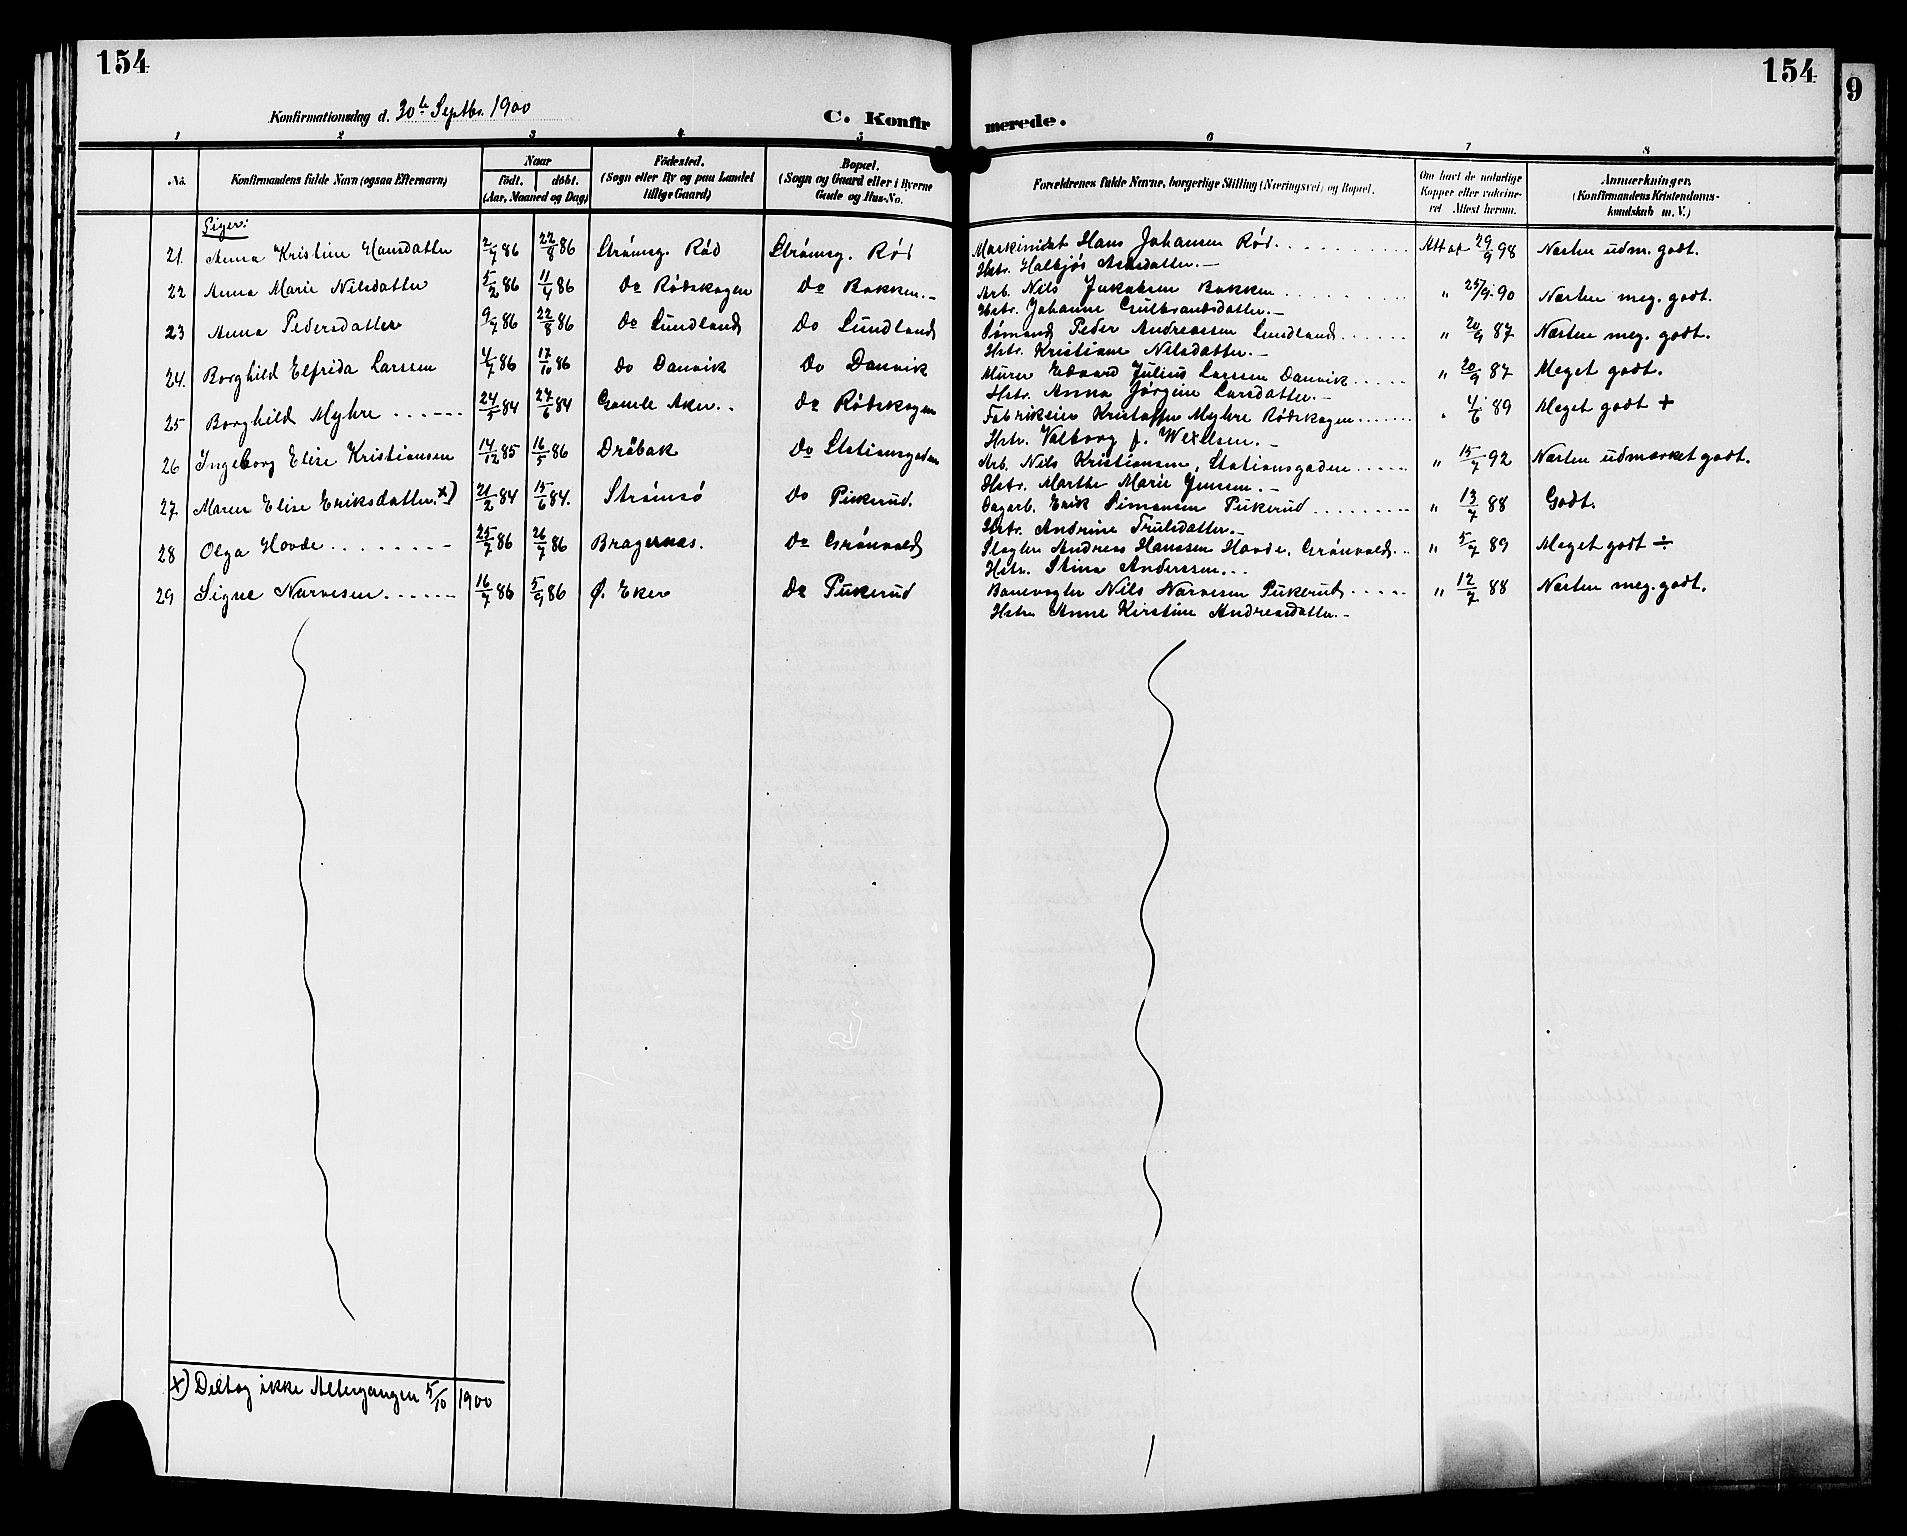 154
154
9
Konfirmationsdag d. 30te Septbr. 1900
C. Konfirmerede.
1 2 3 4 5 6 7 8
No.
Konfirmandens fulde Navn (ogsaa Efternavn)
Naar
födt. döbt.
(Aar, Maaned og Dag)
Födested.
(Sogn eller By og paa Landet
tillige Gaard)
Bopæl.
(Sogn og Gaard eller i Byerne
Gade og Hus-No.
Forældrenes fulde Navne, borgerlige Stilling (Næringsvei) og Bopæl.
Om havt de naturlige
Kopper eller vaccineret
Attest herom.
Anmærkninger,
(Konfirmandens Kristendomskundskab
m. V.)
Piger:
21. Anna Kristine Hansdatter 2/7 86 22/8 86 Strømsg. Rød Strømsg. Rød Maskinist Hans Johansen Rød. Att af 29/9 98 Næsten udm. godt.
Hstr. Halbjør Asksdatter.—
22 Anna Marie Nilsdatter 5/2 86 11/4 86 Do Rødskogen Do Bakken.— Arb. Nils Jakobsen Bakken " 25/9. 90 Næsten meg. godt.
Hstr. Johanne Gulbrandsdatter.—
23 Anna Pedersdatter 9/7 86 22/8 86 Do Lundland Do Lundland Sømand Peder Andreassen Lundland " 20/9 87 Næsten meg. godt.
Hstr. Kristiane Nilsdatter.—
24. Borghild Elfrida Larssen 4/7 86 17/10 86 Do Danvik Do Danvik Murer Edvard Julius Larssen Danvik " 20/9 87 Meget godt.
Hstr. Anna Jørgine Larsdatter.—
25 Borghild Myhre 24/5 84 27/6 84 Gamle Aker.. Do Rødskogen Fabrikeier Kristoffer Myhre Rødskogen " 4/6 89 Meget godt +
Hstr. Valborg f. Wexelsen.—
26 Ingeborg Elise Kristiansen 14/12 85 16/5 86 Drøbak Do Stationsgaden Arb. Nils Kristiansen, Stationsgaden " 15/7 92 Næsten udmærket godt.
Hstr. Marthe Marie Jensen.—
27. Maren Elise Eriksdatter. x) 21/2 84 15/6 84. Strømsø Do Pukerud. Dagarb. Erik Simensen Pukerud " 13/7 88 Godt.
Hstr. Andrine Trulsdatter.—
28 Olga Hovde 25/7 86 26/7 86 Bragernæs. Do Grønvold Slagter Andreas Hanssen Hovde, Grønvold " 5/7 89 Meget godt ÷
Hstr. Stina Andersen...
29 Signe Narvesen 16/7 86 5/9 86 Ø. Eker Do Pukerud Banevogter Nils Narvesen Pukerud " 12/7 88 Næsten meg. godt.
Hstr. Anne Kirstine Andreasdatter.—
x) Deltog ikke Altergangen 5/10 1900